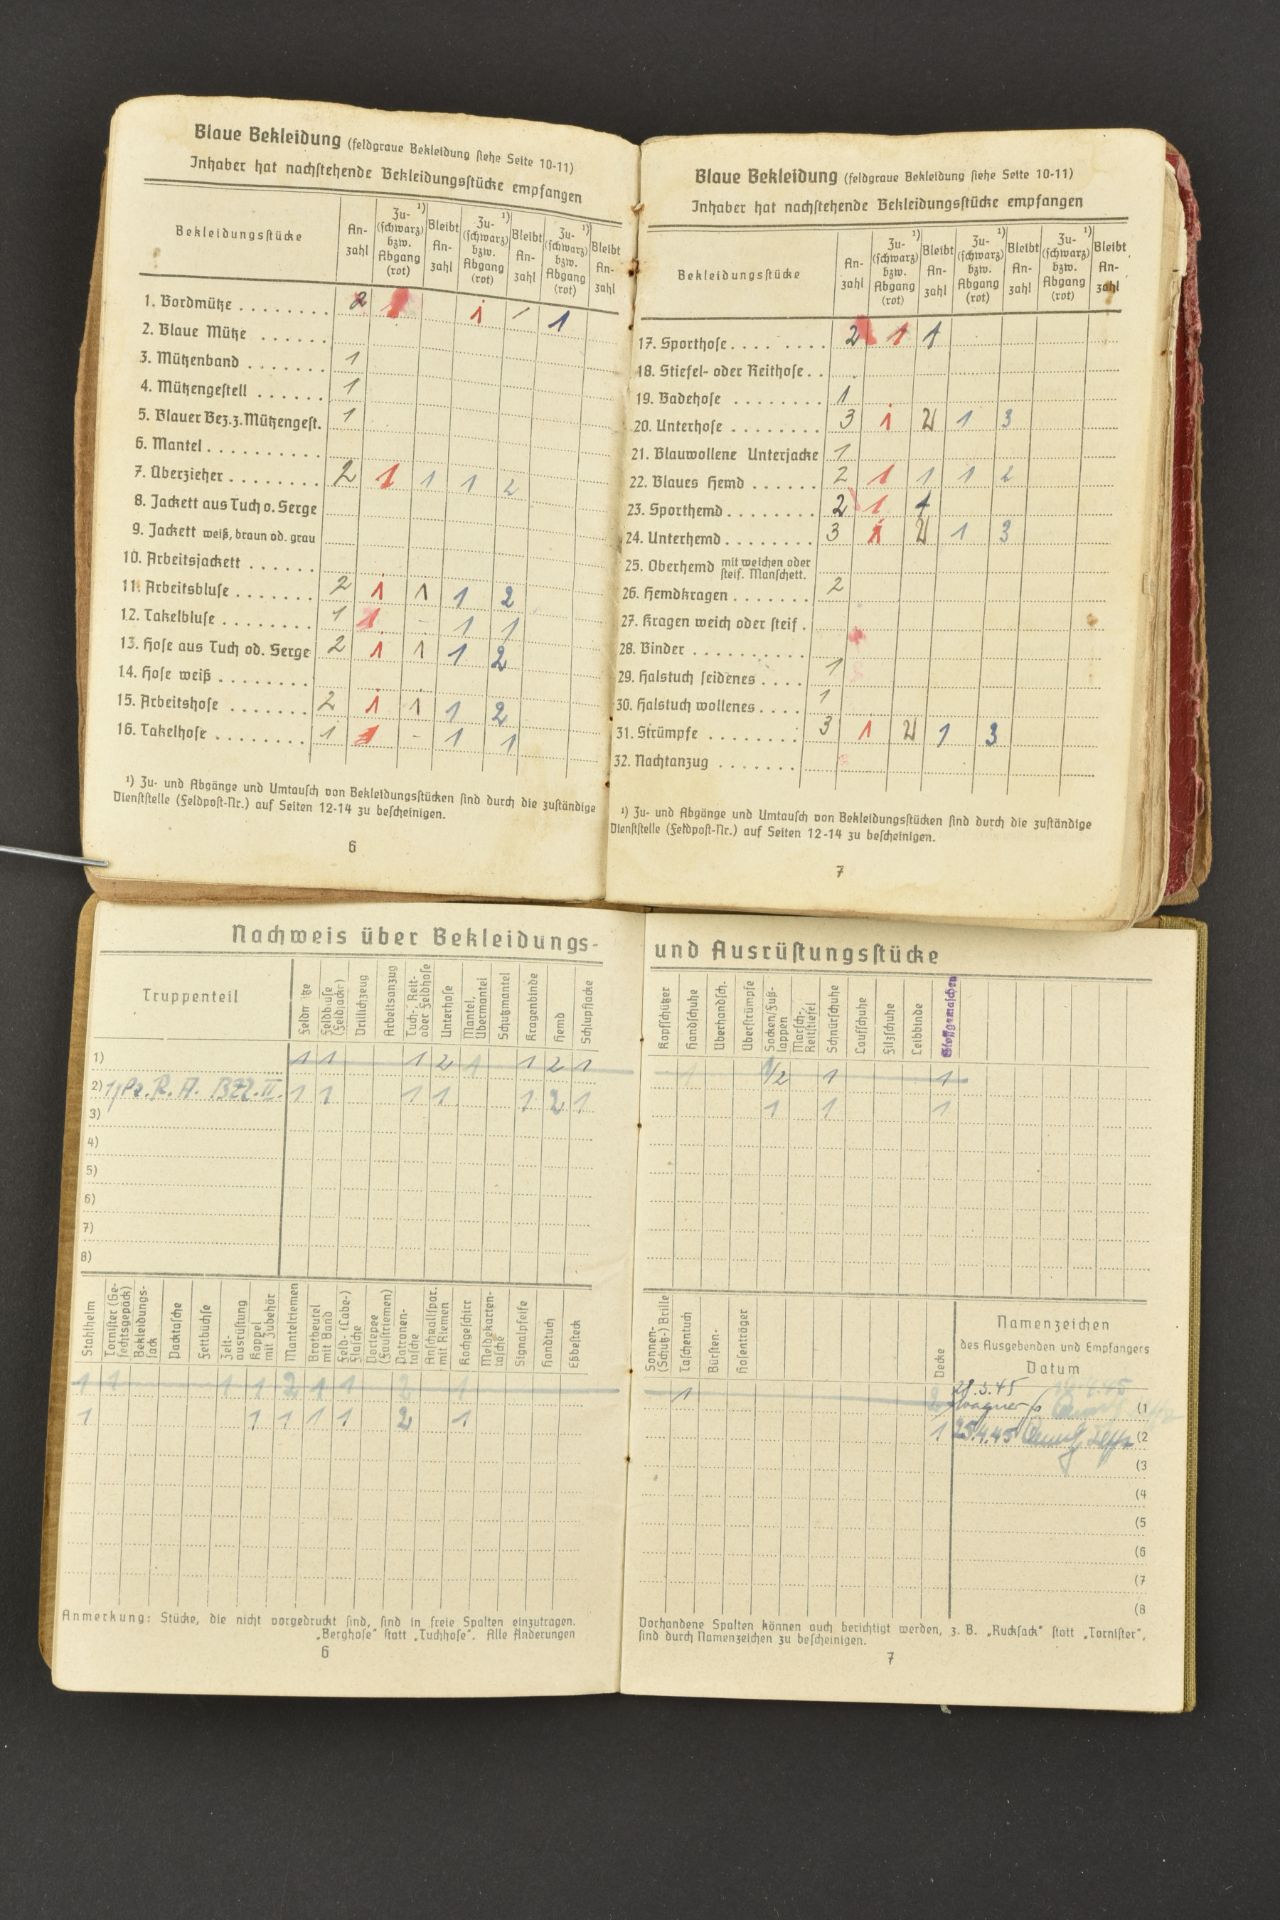 Blaue Bekleidung (feldgraue Bekleidung siehe Seite 10-11)
Inhaber hat nachstehende Bekleidungsstücke empfangen
Bekleidungsstücke An-zahl Zu- ¹) (schwarz) bzw. Abgang (rot) Bleibt An-zahl Zu- ¹) (schwarz) bzw. Abgang (rot) Bleibt An-zahl Zu- ¹) (schwarz) bzw. Abgang (rot) Bleibt An-zahl
1. Bordmütze . . . . . . . . 2 1 1 1 1
2. Blaue Mütze . . . . . .
3. Mützenband . . . . . . . 1
4. Mützengestell . . . . . . 1
5. Blauer Bez. z. Mützengest. 1
6. Mantel . . . . . . . . . .
7. Überzieher . . . . . . . . 2 1 1 1 2
8. Jackett aus Tuch o. Serge
9. Jackett weiß, braun od. grau
10. Arbeitsjackett . . . . . .
11. Arbeitsbluse . . . . . . . 2 1 1 1 2
12. Takelbluse . . . . . . . . 1 1 - 1 1
13. Hose aus Tuch od. Serge 2 1 1 1 2
14. Hose weiß . . . . . . . .
15. Arbeitshose . . . . . . . 2 1 1 1 2
16. Takelhose . . . . . . . . 1 1 - 1 1
¹) Zu- und Abgänge und Umtausch von Bekleidungsstücken sind durch die zuständige
Dienststelle (Feldpost-Nr.) auf Seiten 12-14 zu bescheinigen.
6
Blaue Bekleidung (feldgraue Bekleidung siehe Seite 10-11)
Inhaber hat nachstehende Bekleidungsstücke empfangen
Bekleidungsstücke An-zahl Zu- ¹) (schwarz) bzw. Abgang (rot) Bleibt An-zahl Zu- ¹) (schwarz) bzw. Abgang (rot) Bleibt An-zahl Zu- ¹) (schwarz) bzw. Abgang (rot) Bleibt An-zahl
17. Sporthose . . . . . . . . 2 1 1
18. Stiefel- oder Reithose . .
19. Badehose . . . . . . . . 1
20. Unterhose . . . . . . . . 3 1 2 1 3
21. Blauwollene Unterjacke 1
22. Blaues Hemd . . . . . . 2 1 1 1 2
23. Sporthemd . . . . . . . . 2 1 1
24. Unterhemd . . . . . . . . 3 1 2 1 3
25. Oberhemd mit weichen oder steif. Manschett.
26. Hemdkragen . . . . . . . 2
27. Kragen weich oder steif .
28. Binder . . . . . . . . . .
29. Halstuch seidenes . . . . 1
30. Halstuch wollenes . . . . 1
31. Strümpfe . . . . . . . . 3 1 2 1 3
32. Nachtanzug . . . . . . .
¹) Zu- und Abgänge und Umtausch von Bekleidungsstücken sind durch die zuständige
Dienststelle (Feldpost-Nr.) auf Seiten 12-14 zu bescheinigen.
7
Nachweis über Bekleidungs- und Ausrüstungsstücke
Truppenteil Feldmütze Feldbluse (Feldjacke) Drillichzeug Arbeitsanzug Tuch-, Reit- oder Feldhose Unterhose Mantel, Übermantel Schutzmantel Kragenbinde Hemd Schlupfjacke
1) 1 1 1 2 1 1 2 1
2) R. A. II. 1 1 1 1 1 2 1
3)
4)
5)
6)
7)
8)
Kopfschützer Handschuhe Überhandsch. Überstrümpfe Socken/Fußlappen Marsch-, Reitstiefel Schnürschuhe Laufschuhe Filzschuhe Leibbinde
1/2 1 1
1 1 1
Stahlhelm Tornister (Gefechtsgepäck) Bekleidungs-sack Packtasche Fettbüchse Zelt-ausrüstung Koppel mit Zubehör Mantelriemen Brotbeutel mit Band Feld- (Labe-) Flasche Portepee (Faustriemen) Patronen-tasche Anschnallspor. mit Riemen Kochgeschirr Meldekarten-tasche Signalpfeife Handtuch Eßbesteck
1 1 1 1 2 1 1 2 1
1 1 1 1 1 2 1
Sonnen- (Schutz-) Brille Taschentuch Bürsten- Hosenträger Decke
Namenzeichen
des Ausgebenden und Empfängers
Datum
1 2 28.3.45 Wagner (1
1 25.4.45 (2
(3
(4
(5
(6
(7
(8
Anmerkung: Stücke, die nicht vorgedruckt sind, sind in freie Spalten einzutragen.
„Berghose" statt „Tuchhose". Alle Änderungen
6
Vorhandene Spalten können auch berichtigt werden, z. B. „Rucksack" statt „Tornister",
sind durch Namenzeichen zu bescheinigen.
7